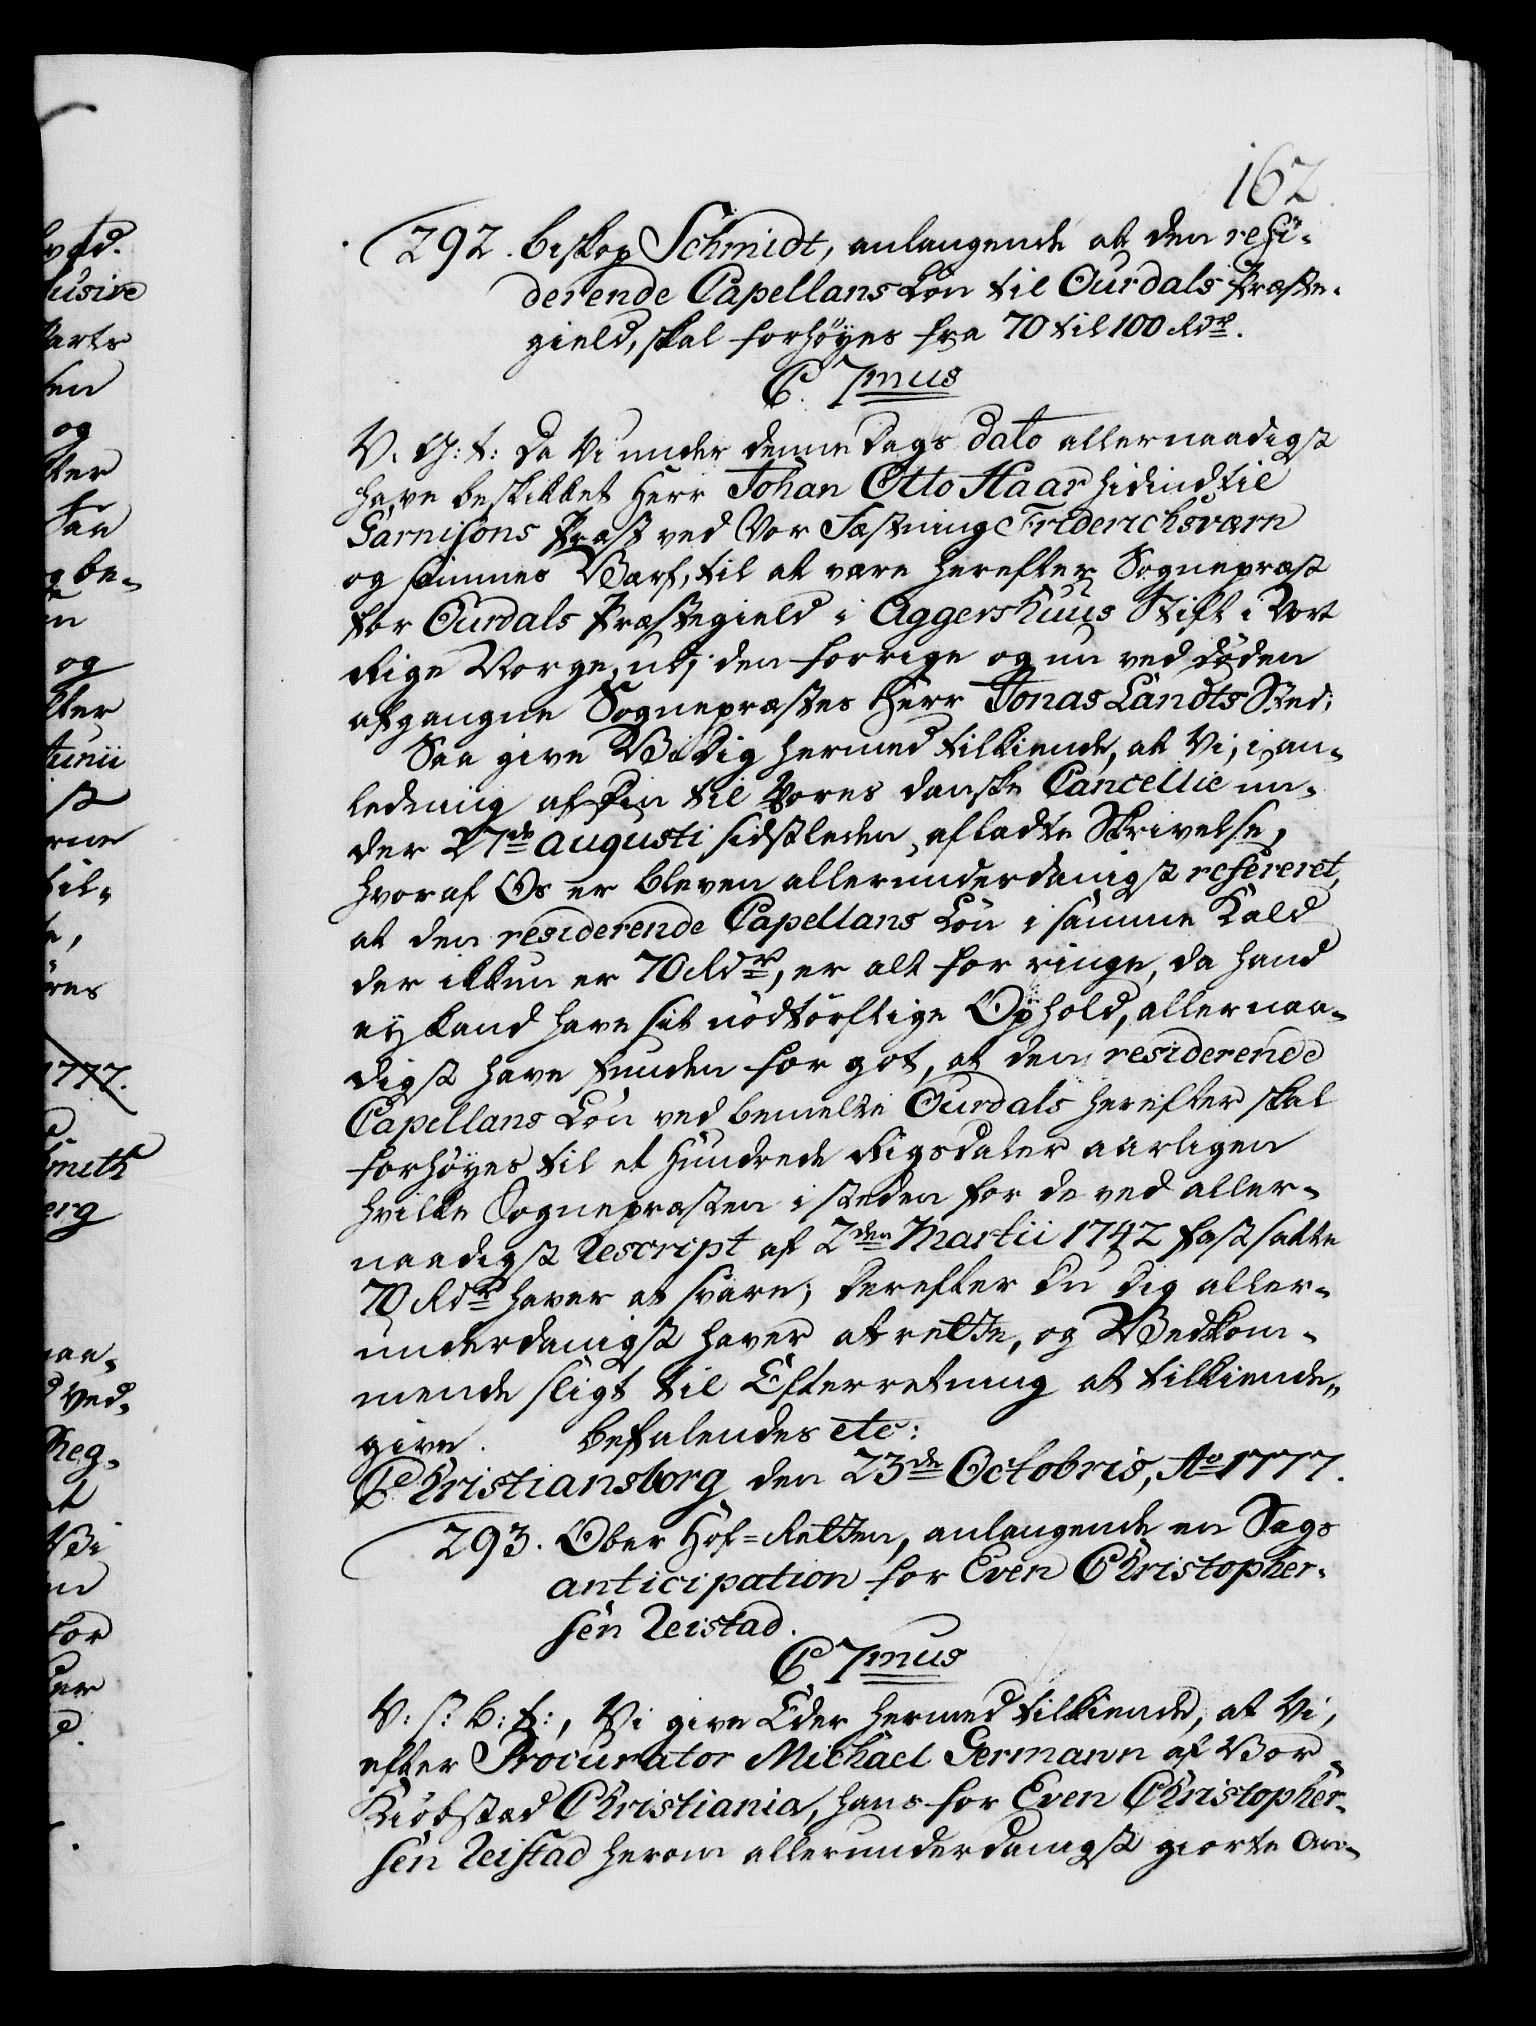 162.
292. Biskop Schmidt, anlangende at den resi-
derende Capellans Løn til Ourdals Præste-
gield, skal forhøyes fra 70 til 100 Rdr.
C. 7mus
V. G: t: Da Vi under denne Dags dato allernaadigst
have beskikket Herr Johan Otto Haar hidindtil
Garnisons Præst ved Vor Fæstning Friderichsværn
og sammes Værf, til at være herefter Sognepræst
for Ourdals Præstegield i Aggershuus Stift i Vort
Rige Norge, udi den forrige og nu ved døden
afgangne Sognepræstes Herr Jonas Landts Sted;
Saa give Vi Dig hermed tilkiende, at Vi, i an-
ledning af Din til Vores danske Cancellie un-
der 27de Augusti sidstleden, afladte Skrivelse,
hvoraf Os er bleven allerunderdanigst refereret,
at den residerende Capellans Løn i samme Kald
der ikkun er 70 Rdr, er alt for ringe, da hand
ey kand have sit nødtørftige Ophold, allernaa-
digst have funden for got, at den residerende
Capellans Løn ved bemelte Ourdals herefter skal
forhøyes til et Hundrede Rigsdaler aarligen
hvilke Sognepræsten i steden for de ved aller-
naadigst Rescript af 2den Martii 1742 fastsatte
70 Rdr haver at svare; Derefter Du Dig aller-
underdanigst haver at rette, og Vedkom-
mende sligt til Efterretning at tilkiende-
give. Befalendes etc:
Christiansborg den 23de Octobris, Ao 1777.
293. Ober Hof=Retten, anlangende en Sags
anticipation for Even Christopher-
sen Reistad.
C 7mus
V: s: b: t:, Vi give Eder hermed tilkiende, at Vi,
efter Procurator Michael Germann af Vor
Kiøbstæd Christiania, hans for Even Christopher-
sen Reistad herom allerunderdanigst giorte An-